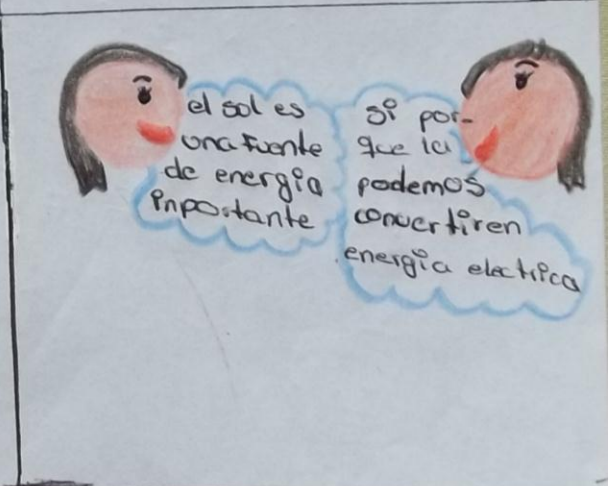 el sol es
una fuente
de energia
inpostante
si por-
que la
podemos
convertiren
energia electrica